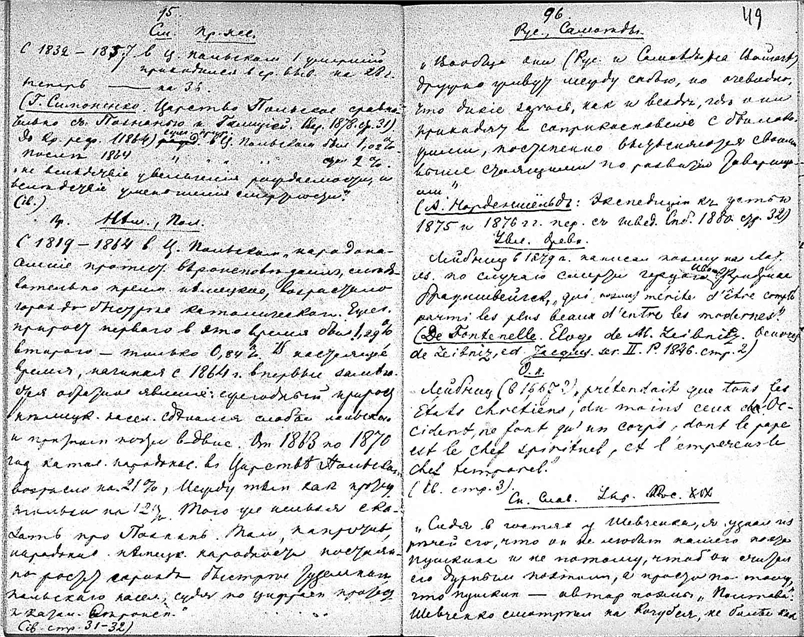 95
См. Пр. нес.
С 1832 – 1857 в Ц. Польском 1 умерший
приходился в ср. выв. на 28 г.
теперь —— на 36.
(Г. Симоненко. Царство Польское сравни-
тельно с Познанью и Галицией. Вар. 1878. стр. 31)
До Кр. реф. (1864) в Ц. Польском был 1,08%
После 1864 " " " 2%
"не вследствие увеличения рождаемости, а
вследствие уменьшения смертности".
(ib.)
Нѣм., Пол.
С 1819 – 1864 в Ц. Польском "народона-
селение протест. вероисповедания, следо-
вательно преим. немецкое, возрастало
гораздо быстрее католического. Ежег.
прирост первого в это время был 1,29%
второго – только 0,84%. В настоящее
время, начиная с 1864 г. впервые замеча-
ется обратное явление: ежегодный прирост
немецк. насел. сделался слабее польского
и притом почти вдвое. От 1863 по 1870
год катол. народонас. в Царстве Польском
возросло на 21%, между тем как проте-
стантское на 12%. Того же нельзя ска-
зать про Познань. Там, напротив,
немецк. народность постоян-
но растет гораздо быстрее туземного
польского насел., судя по цифрам
(ib. стр. 31–32)
96
49
Рус., Самоѣды.
"Вообще они (Рус. и Самоѣды на Вайгаче)
дружно живут между собою, но очевидно,
что дикие здесь, как и везде, где они
приходят в соприкосновение с цивилизо-
ванными, постепенно вытесняются своими
выше стоящими по развитию товарища-
ми"
(А. Норденшельд: Экспедиции к устью
1875 и 1876 гг. пер. с швед. Спб. 1880. стр. 32)
Лейбниц в 1679 г. написал поэму на Лат.
яз. по случаю смерти герцога Фридриха
Брауншвейгск. "qui mérite d'être comptée
parmi les plus beaux d'entre les modernes".
(De Fontenelle. Eloge de M. Leibnitz. Oeuvres
de Leibniz, ed. Jacques. ser. II. P. 1846. стр. 2)
Лейбниц (в 1667?), prétendait que tous les
Etats chrétiens, du moins ceux d'Oc-
cident, ne font qu'un corps, dont le pape
est le chef spirituel, et l'empereur le
chef temporel."
(ib. стр. 3).
См. Слав. Укр. XIX
"Сидя в гостях у Шевченка, я узнал из
речей его, что он не любит нашего поэта
Пушкина и не потому, чтоб он считал
его дурным поэтом, а просто потому,
что Пушкин – автор поэмы "Полтава".
Шевченко смотрит на Кочубея, не более как